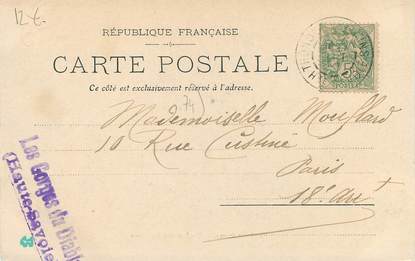 12 €
RÉPUBLIQUE FRANÇAISE
CARTE POSTALE
Ce côté est exclusivement réservé à l'adresse.
(74)
Mademoiselle Mouflard
10 Rue Custine
Paris
18e Art
Les Gorges du Diable
(Haute-Savoie